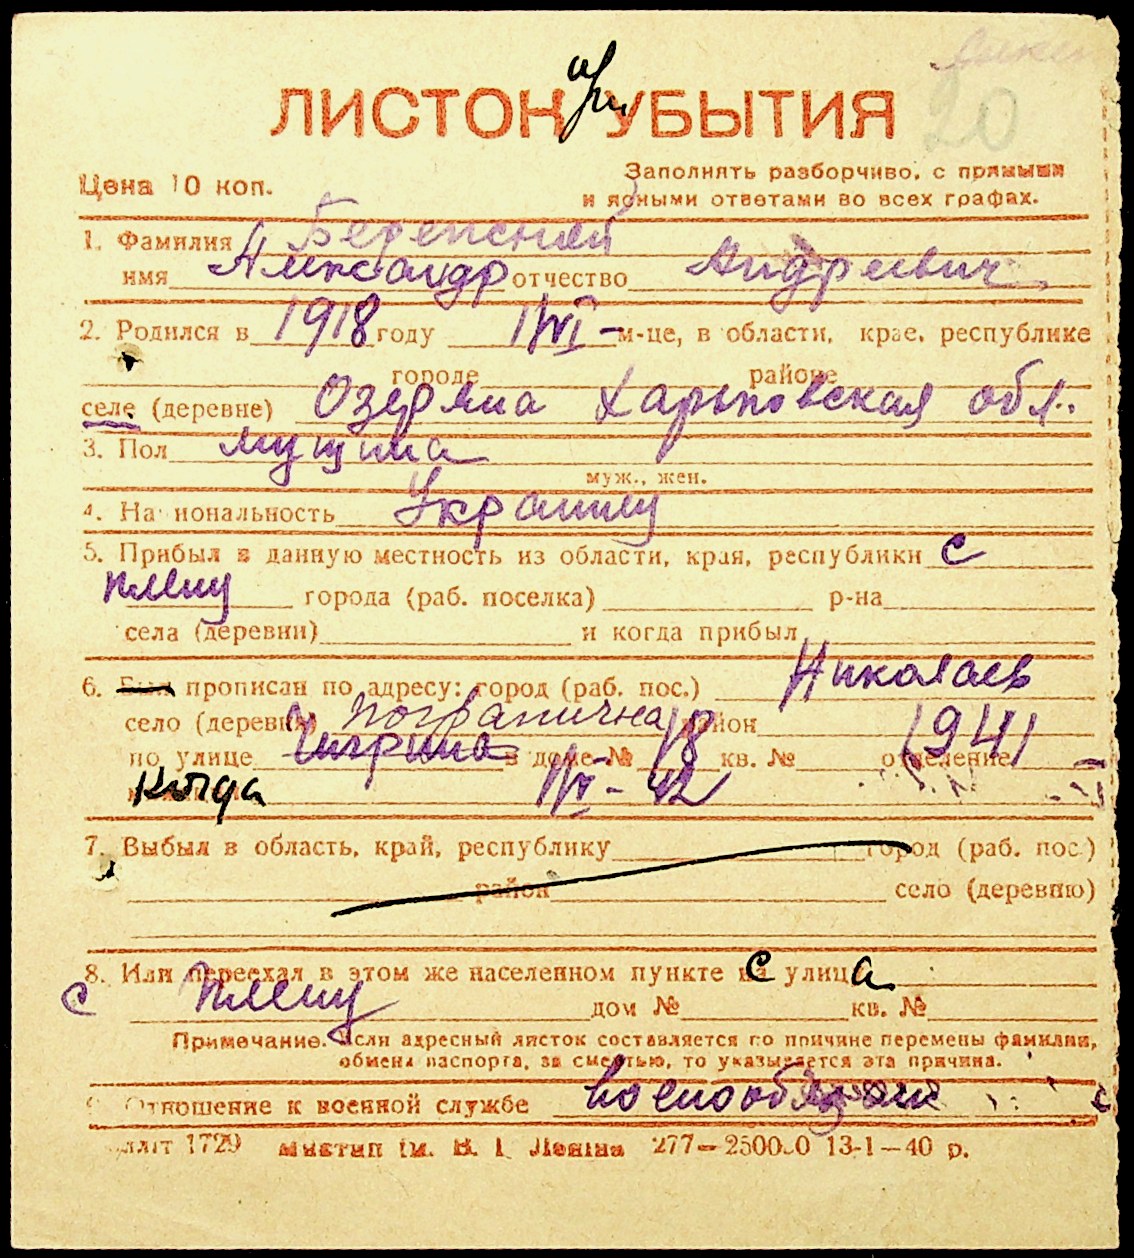 ЛИСТОК при УБЫТИЯ
20
Цена 10 коп.
Заполнять разборчиво, с прямыми
и ясными ответами во всех графах.
1. Фамилия
имя Александр отчество Андреевич
2. Родился в 1918 году 1/VI - м-це, в области, крае, республике
городе районе
селе (деревне) Озеряна Харьковская обл.
3. Пол мущина
муж., жен.
4. На иональность Украинец
5. Прибыл в данную местность из области, края, республики с
плену города (раб. поселка) р-на
села (деревни) и когда прибыл
6. Был прописан по адресу: город (раб. пос.) Николаев
село (деревня) Погранична район
по улице Чигрина в доме № 18 кв. № отделение 1941
Когда 1/VI - 42
7. Выбыл в область, край, республику город (раб. пос.)
район село (деревню)
8. Или переехал в этом же населенном пункте на с улица
с плену дом № кв. №
Примечание. Если адресный листок составляется по причине перемены фамилии,
обмена паспорта, за смертью, то указывается эта причина.
9. Отношение к военной службе военообязан
1729 277—2500.0 13-1—40 р.